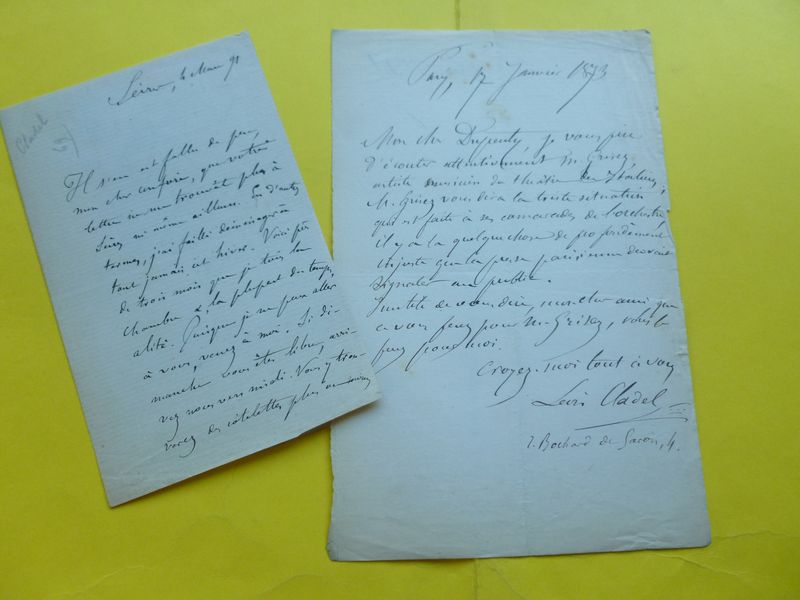 Cladel
Sèvres, 6 Mars 91
Il s'en est fallu de peu,
mon cher confrère, que votre
lettre ne me trouvât plus à
Sèvres ni même ailleurs. En d'autres
termes, j'ai failli déménager à
tout jamais cet hiver. Voici près
de trois mois que je tiens la
chambre & la plupart du temps,
alité. Puisque je ne puis aller
à vous, venez à moi. Si di-
manche vous êtes libre, arri-
vez nous vers midi. Vous y trou-
verez des côtelettes plus ou moins
Paris, 17 Janvier 1873
Mon cher Dupeuty, je vous prie
d'écouter attentivement M. Grisez,
artiste musicien du théâtre des Italiens,
M. Grisez vous dira la triste situation
qui est faite à ses camarades de l'orchestre
il y a là quelque chose de profondément
injuste que la presse parisienne devrait
signaler au public.
Inutile de vous dire, mon cher ami que
ce vous ferez pour M. Grisez, vous le
ferez pour moi.
Croyez-moi tout à vous
Léon Cladel
r. Bochard de Saron, 4.